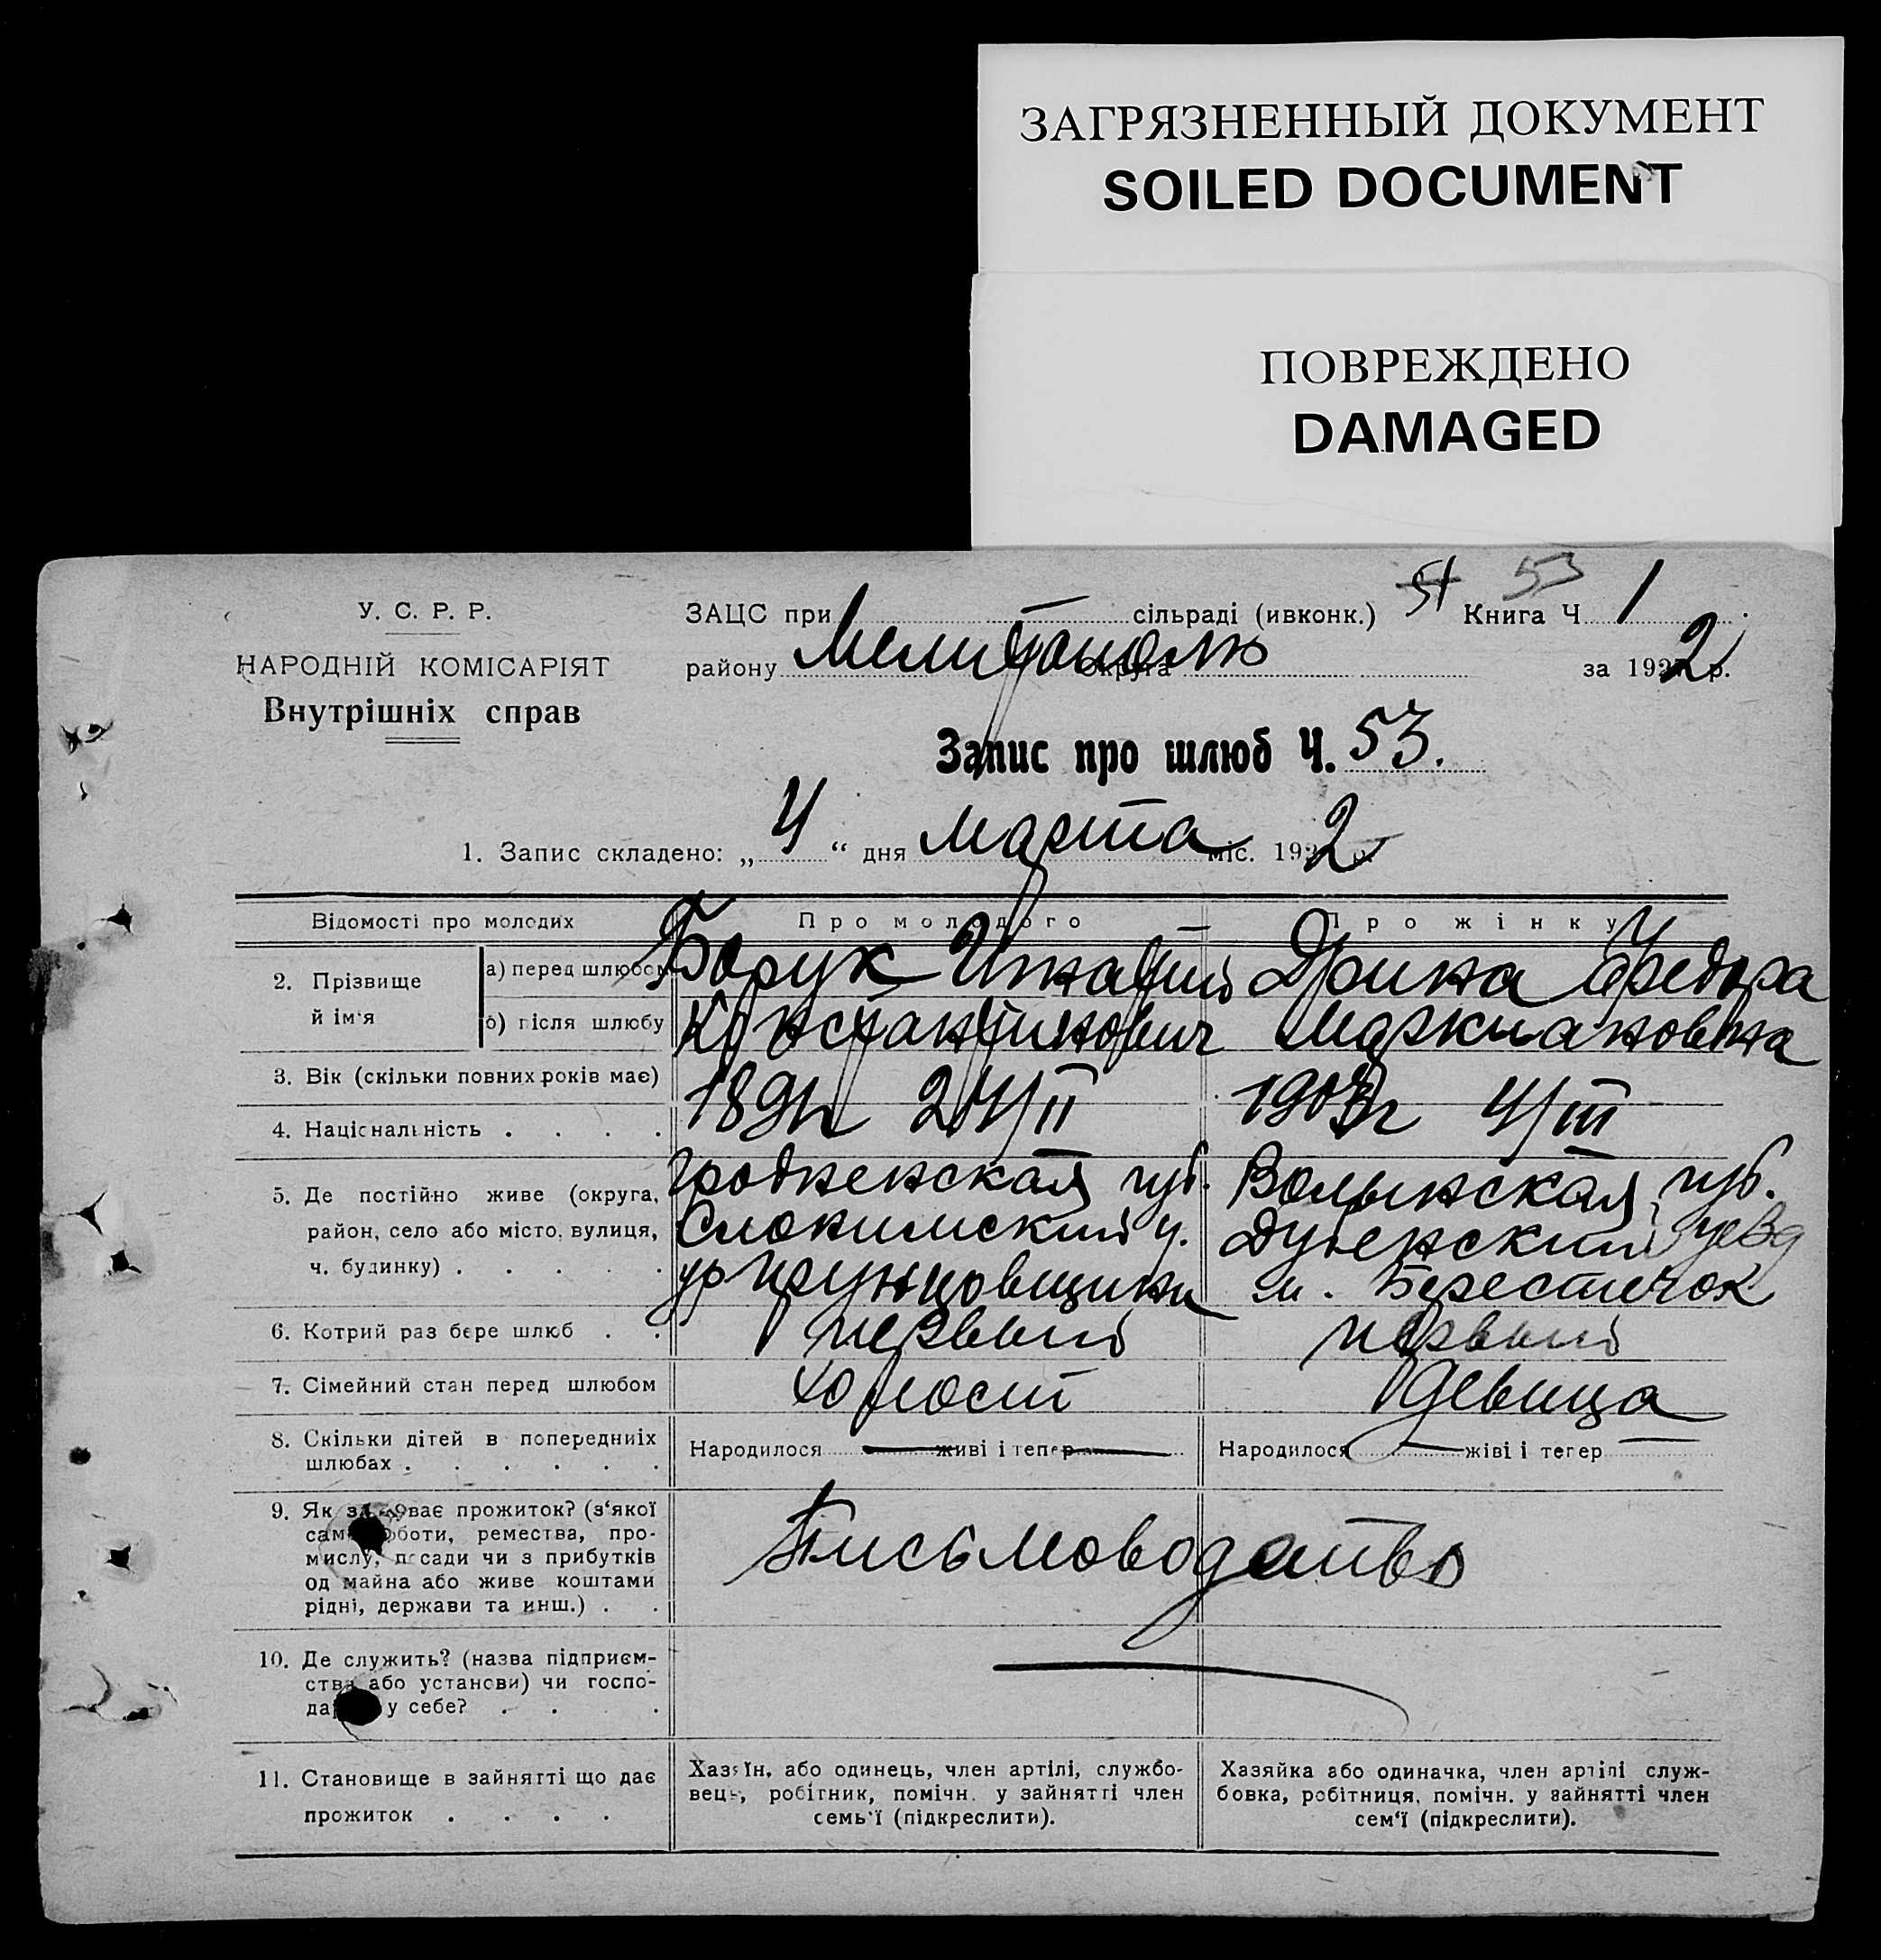 ЗАГРЯЗНЕННЫЙ ДОКУМЕНТ
SOILED DOCUMENT
ПОВРЕЖДЕНО
DAMAGED
У. С. Р. Р.
НАРОДНІЙ КОМІСАРІЯТ
Внутрішніх справ
ЗАЦС при сільраді (ивконк.) 51 53 Книга Ч 1
району Мелитополь округа за 1922 р.
Запис про шлюб Ч. 53.
1. Запис складено: „ 4 “ дня марта міс. 1922 р.
Відомості про молодих Про молодого Про жінку
2. Прізвище й ім'я
а) перед шлюбом Борук Игнатий Дрина Федора
б) після шлюбу Константинович Маркиановна
3. Вік (скільки повних років має)
4. Національність . . . . 24/II 4/III
5. Де постійно живе (округа, Гродненская губ. Волынская губ.
район, село або місто, вулиця, Слонимский у. Дубенский уезд
ч. будинку) . . . . . м. Берестечок
6. Котрий раз бере шлюб . . первый первый
7. Сімейний стан перед шлюбом холост девица
8. Скільки дітей в попередніх Народилося живі і тепер Народилося жіві і тепер
шлюбах . . . . . .
9. Як здобуває прожиток? (з'якої
саме роботи, ремества, про-
мислу, посади чи з прибутків Письмоводство
од майна або живе коштами
рідні, держави та инш.) . .
10. Де служить? (назва підприєм-
ства або установи) чи госпо-
дарює у себе? . . . .
11. Становище в зайнятті що дає
прожиток . . . .
Хазяїн, або одинець, член артілі, службо-
вець, робітник, помічн. у зайнятті член
семь'ї (підкреслити).
Хазяйка або одиначка, член артілі служ-
бовка, робітниця, помічн. у зайнятті член
сем'ї (підкреслити).